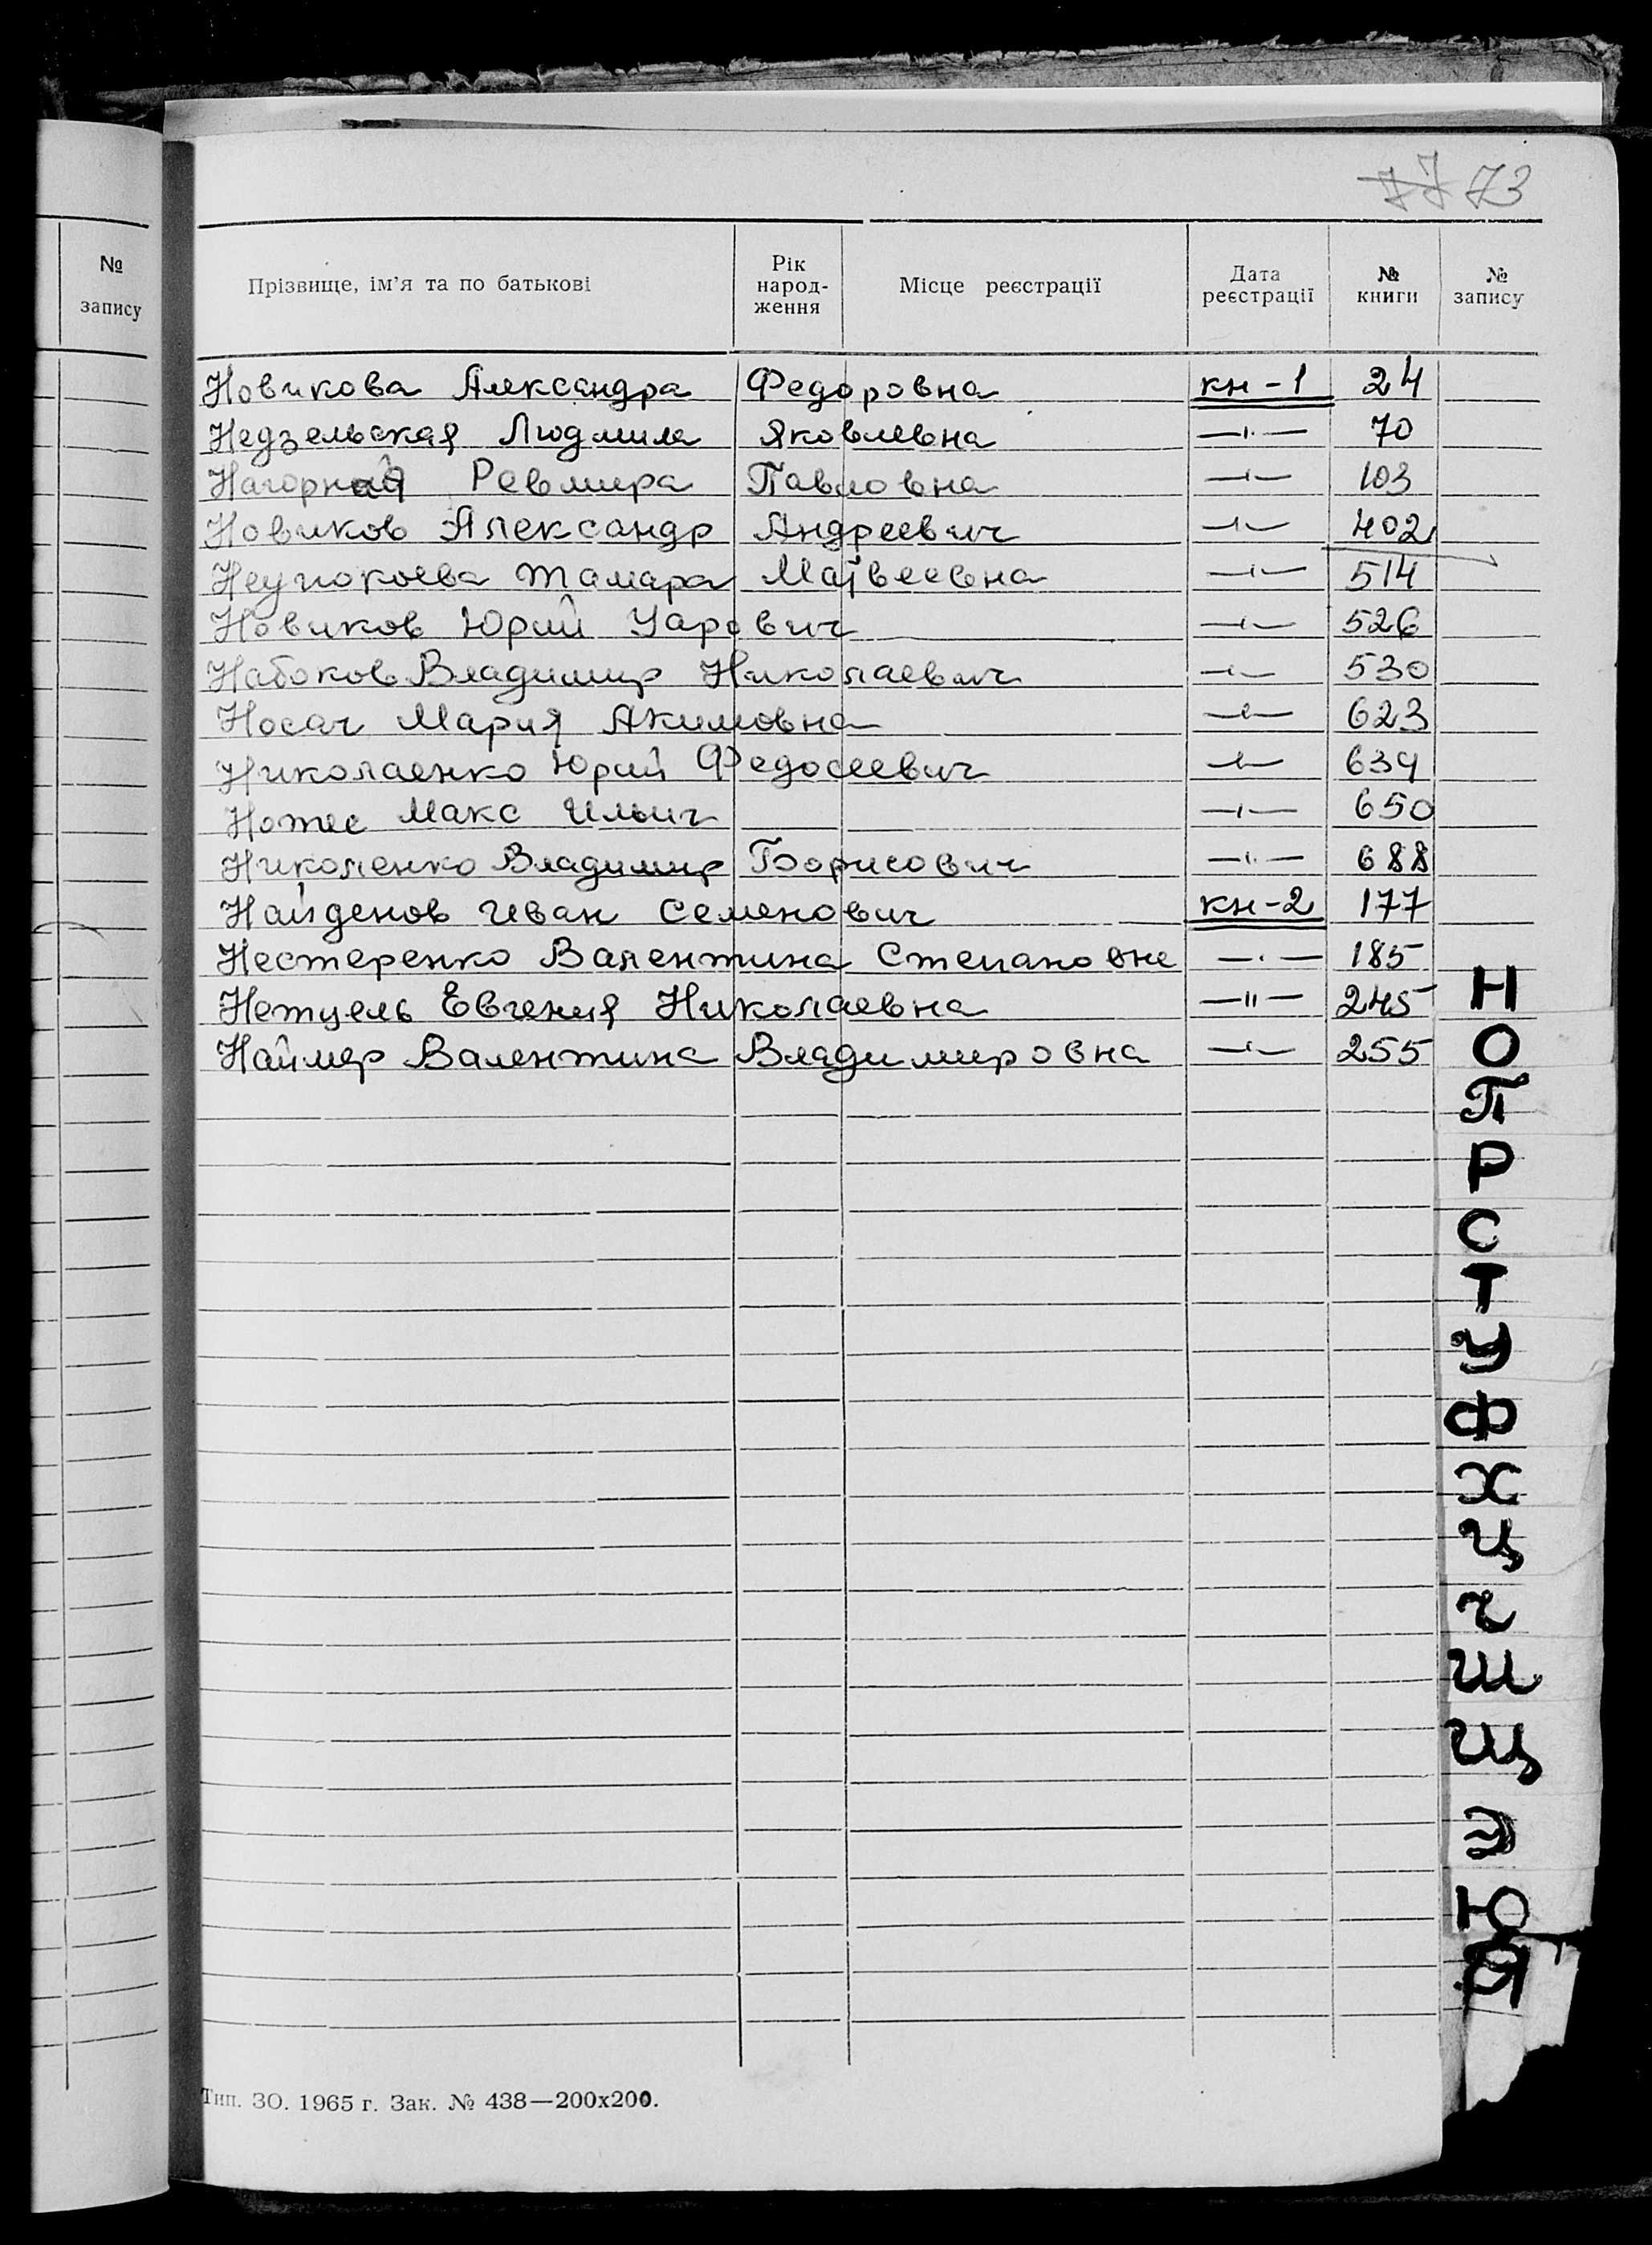 77 73
№ запису
Прізвище, ім'я та по батькові Рік народ-ження Місце реєстрації Дата реєстрації № книги № запису
Новикова Александра Федоровна кн-1 24
Недзельская Людмила Яковлевна —"— 70
Нагорная Ревмира Павловна —"— 103
Новиков Александр Андреевич —"— 402
Неупокоева Тамара Матвеевна —"— 514
Новиков Юрий Уарович —"— 526
Набоков Владимир Николаевич —"— 530
Носач Мария Акимовна —"— 623
Николаенко Юрий Федосеевич —"— 639
Нотес Макс Ильич —"— 650
Николенко Владимир Борисович —"— 688
Найденов Иван Семенович кн-2 177
Нестеренко Валентина Степановне —"— 185
Нетцель Евгения Николаевна —"— 245
Наймер Валентина Владимировна —"— 255
Н
О
П
Р
С
Т
У
Ф
Х
Ц
Ч
Ш
Щ
Э
Ю
Я
Тип. ЗО. 1965 г. Зак. № 438—200х200.